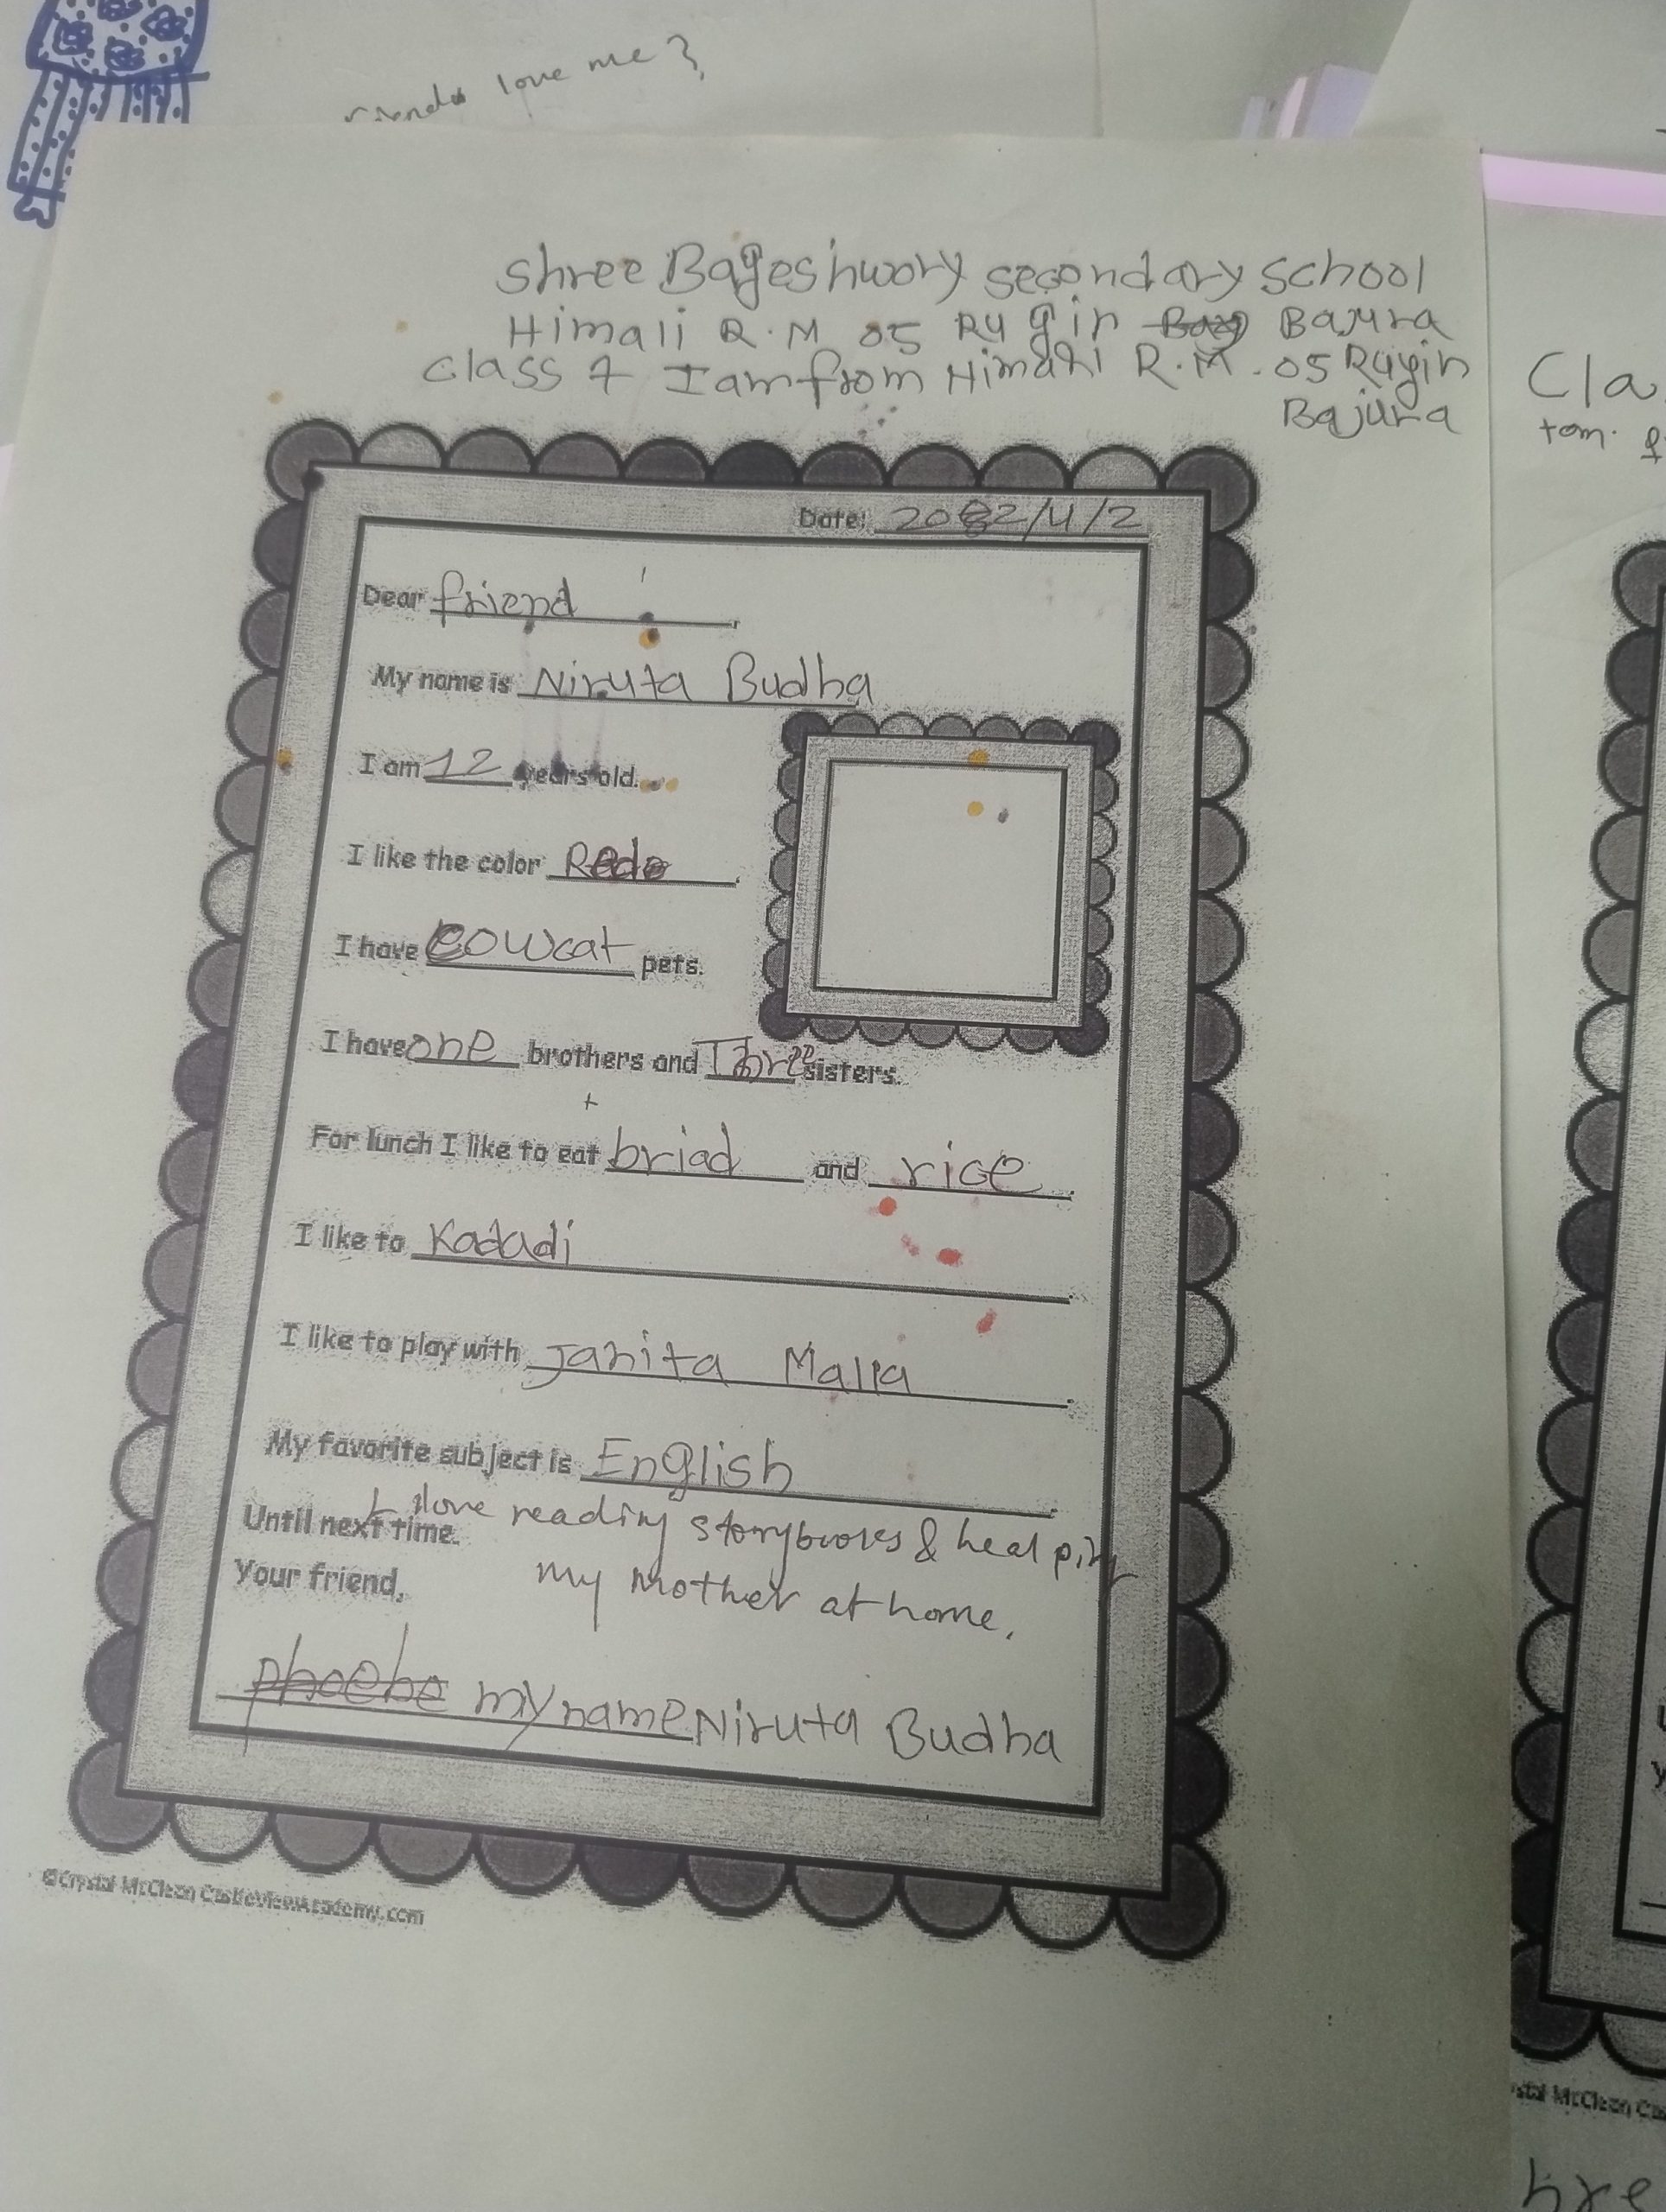 love me?
Shree Bageshwory secondary school
Himali R.M 05 Rugin Bajura
Class 7 I am from Himali R.M. 05 Rugin
Bajura
Cla
Date: 2082/4/2
Dear friend,
My name is Niruta Budha
I am 12 years old.
I like the color Red.
I have cowcat pets.
I have one brothers and Three sisters.
For lunch I like to eat briad and rice.
I like to Kadadi.
I like to play with Janita Malla.
My favorite subject is English.
I love reading storybooks & healping
Until next time.
my mother at home.
Your friend,
phoebe my name Niruta Budha
©Crystal McClean CastleViewAcademy.com